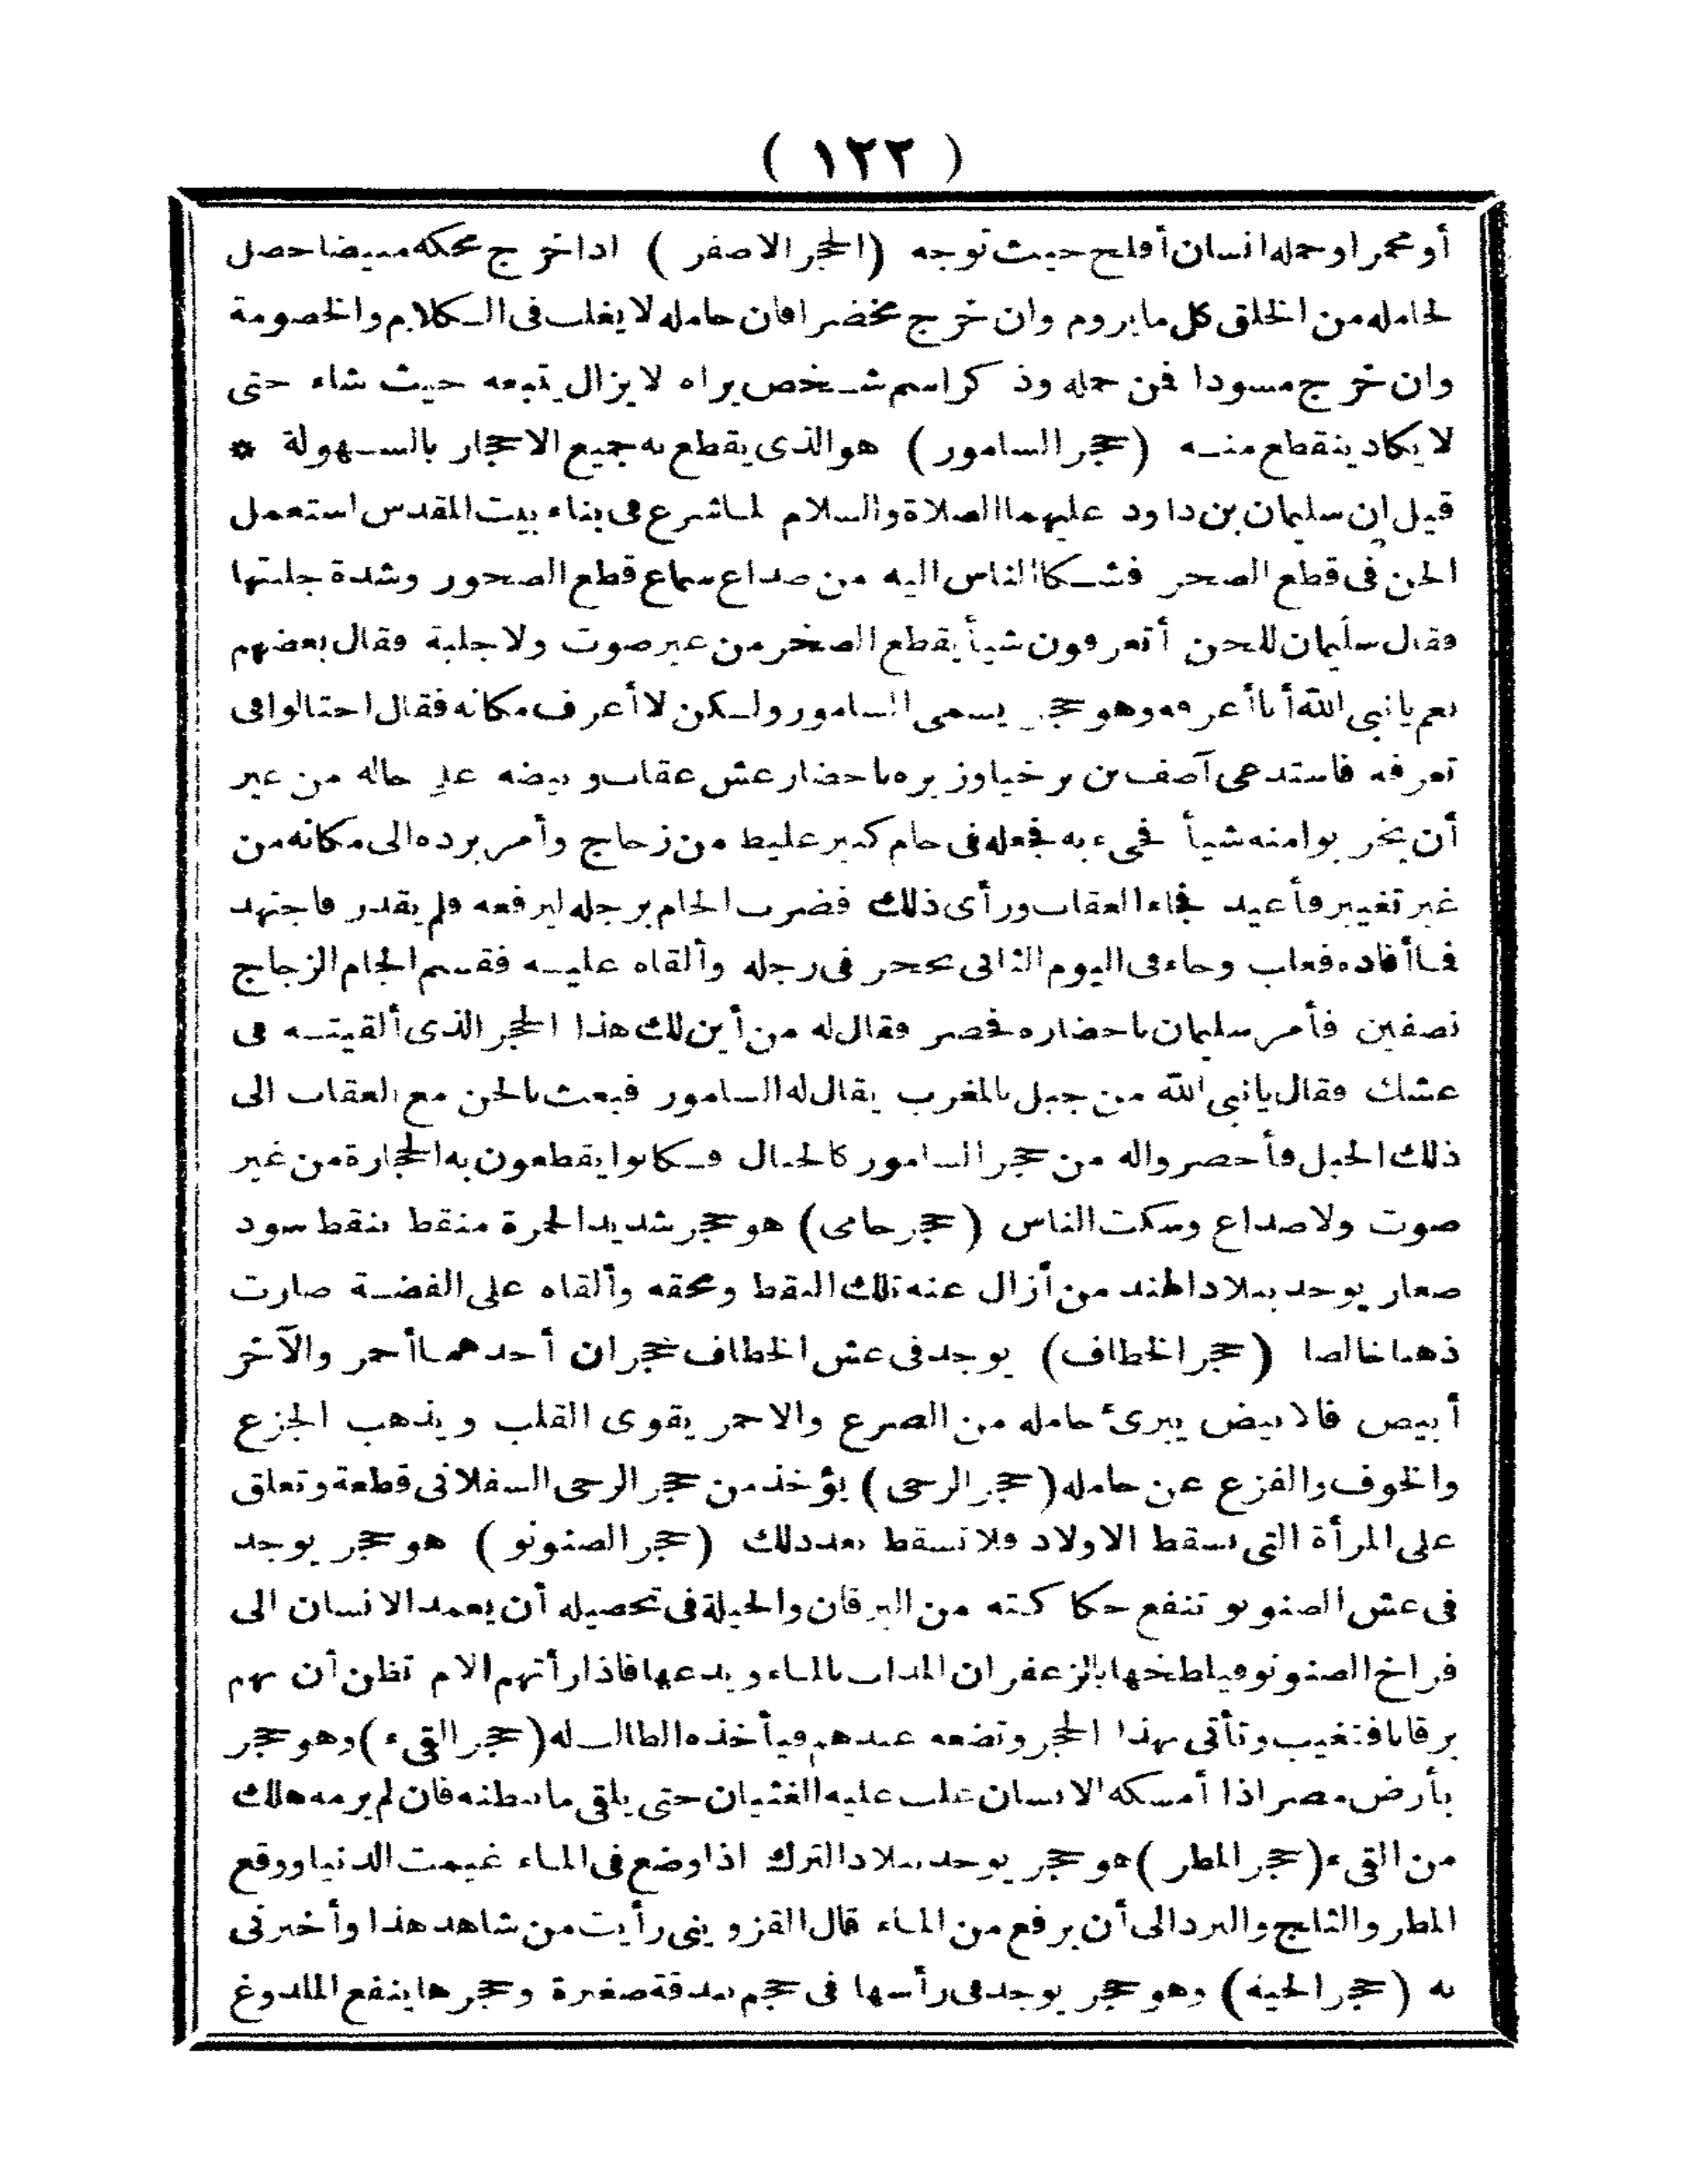 ( ١٢٢ )
أو محمرا وحمله انسان أفلح حيث توجه (الحجر الاصفر) اذا خرج محكه مبيضا حصل
لحامله من الخلق كل ما يروم وان خرج مخضرا فان حامله لا يغلب فى الكلام والخصومة
وان خرج مسودا فمن حمله وذكر اسم شخص يراه لا يزال يتبعه حيث شاء حتى
لا يكاد ينقطع منه (حجر السامور) هو الذى يقطع به جميع الاحجار بالسهولة *
قيل ان سليمان بن داود عليهما الصلاة والسلام لما شرع فى بناء بيت المقدس استعمل
الجن فى قطع الصخر فشكا الناس اليه من صداع سماع قطع الصخور وشدة جلبتها
فقال سليمان للجن أتعرفون شيأ يقطع الصخر من غير صوت ولا جلبة فقال بعضهم
نعم يا نبى الله أنا أعرفه وهو حجر يسمى السامور ولكن لا أعرف مكانه فقال احتالوا فى
تعرفه فاستدعى آصف بن برخيا وزيره باحضار عش عقاب وبيضه على حاله من غير
أن يخربوا منه شيأ فجىء به فجعله فى جام كبير غليظ من زجاج وأمر برده الى مكانه من
غير تغيير فأعيد فجاء العقاب ورأى ذلك فضرب الجام برجله ليرفعه فلم يقدر فاجتهد
فما أفاده فغاب وجاء فى اليوم الثانى بحجر فى رجله وألقاه عليه فقسم الجام الزجاج
نصفين فأمر سليمان باحضاره فحضر فقال له من أين لك هذا الحجر الذى ألقيته فى
عشك فقال يا نبى الله من جبل بالمغرب يقال له السامور فبعث بالجن مع العقاب الى
ذلك الجبل فأحضروا له من حجر السامور كالجبال فكانوا يقطعون به الحجارة من غير
صوت ولا صداع وسكت الناس (حجر حامى) هو حجر شديد الحمرة منقط بنقط سود
صغار يوجد ببلاد الهند من أزال عنه تلك النقط وسحقه وألقاه على الفضة صارت
ذهبا خالصا (حجر الخطاف) يوجد فى عش الخطاف حجران أحدهما أحمر والآخر
أبيض فالابيض يبرئ حامله من الصرع والاحمر يقوى القلب ويذهب الجزع
والخوف والفزع عن حامله (حجر الرحى) يؤخذ من حجر الرحى السفلانى قطعة وتعلق
على المرأة التى تسقط الاولاد فلا تسقط بعد ذلك (حجر الصنونو) هو حجر يوجد
فى عش الصنونو تنفع حكاكته من اليرقان والحيلة فى تحصيله أن يعمد الانسان الى
فراخ الصنونو فيلطخها بالزعفران المذاب بالماء ويدعها فاذا رأتهم الام تظن أن بهم
يرقانا فتغيب وتأتى بهذا الحجر وتضعه عندهم فيأخذه الطالب له (حجر القىء) وهو حجر
بأرض مصر اذا أمسكه الانسان غلب عليه الغثيان حتى يلقى ما ببطنه فان لم يرمه هلك
من القىء (حجر المطر) هو حجر يوجد ببلاد الترك اذا وضع فى الماء غيمت الدنيا ووقع
المطر والثلج والبرد الى أن يرفع من الماء قال القزوينى رأيت من شاهد هذا وأخبرنى
به (حجر الحية) وهو حجر يوجد فى رأسها فى حجم بندقة صغيرة وحجرها ينفع الملدوغ